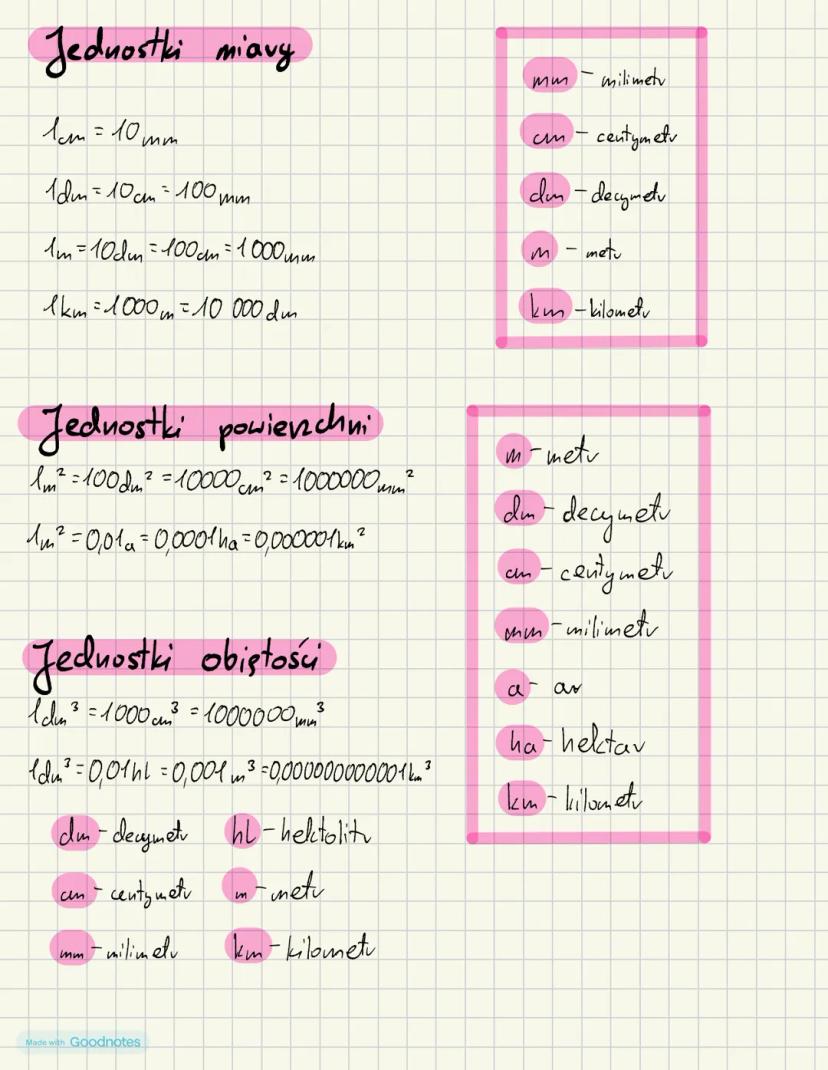 Jednostki miary
1cm = 10mm
1dm = 10cm = 100mm
1m = 10dm = 100cm = 1000mm
1km = 1000m = 10 000dm
mm - milimetr
cm - centymetr
dm - decymetr
m - metr
km - kilometr
Jednostki powierzchni
1m² = 100dm² = 10000cm² = 1000000mm²
1m² = 0,01a = 0,0001ha = 0,000001km²
m - metr
dm - decymetr
cm - centymetr
mm - milimetr
a - ar
ha - hektar
km - kilometr
Jednostki objętości
1dm³ = 1000cm³ = 1000000mm³
1dm³ = 0,01hl = 0,001m³ = 0,000000000001km³
dm - decymetr
cm - centymetr
mm - milimetr
hl - hektolitr
m - metr
km - kilometr
Made with Goodnotes